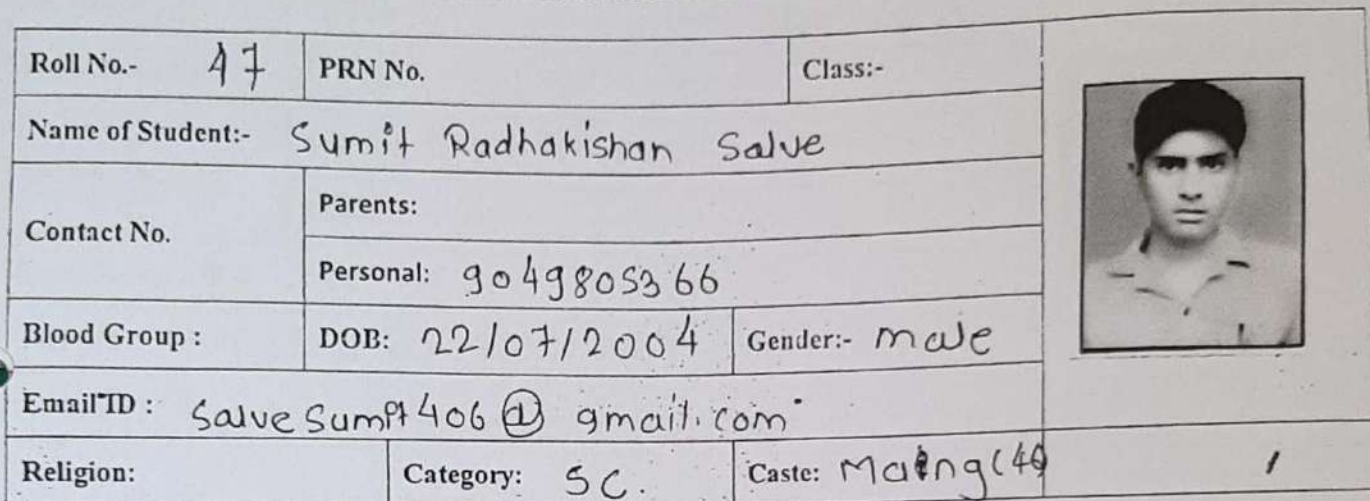 Roll No.- 47 PRN No. Class:-
Name of Student:- Sumit Radhakishan Salve
Contact No.
Parents:
Personal: 9049805366
Blood Group : DOB: 22/07/2004 Gender:- male
Email ID : salvesumit406@gmail.com
Religion: Category: SC. Caste: